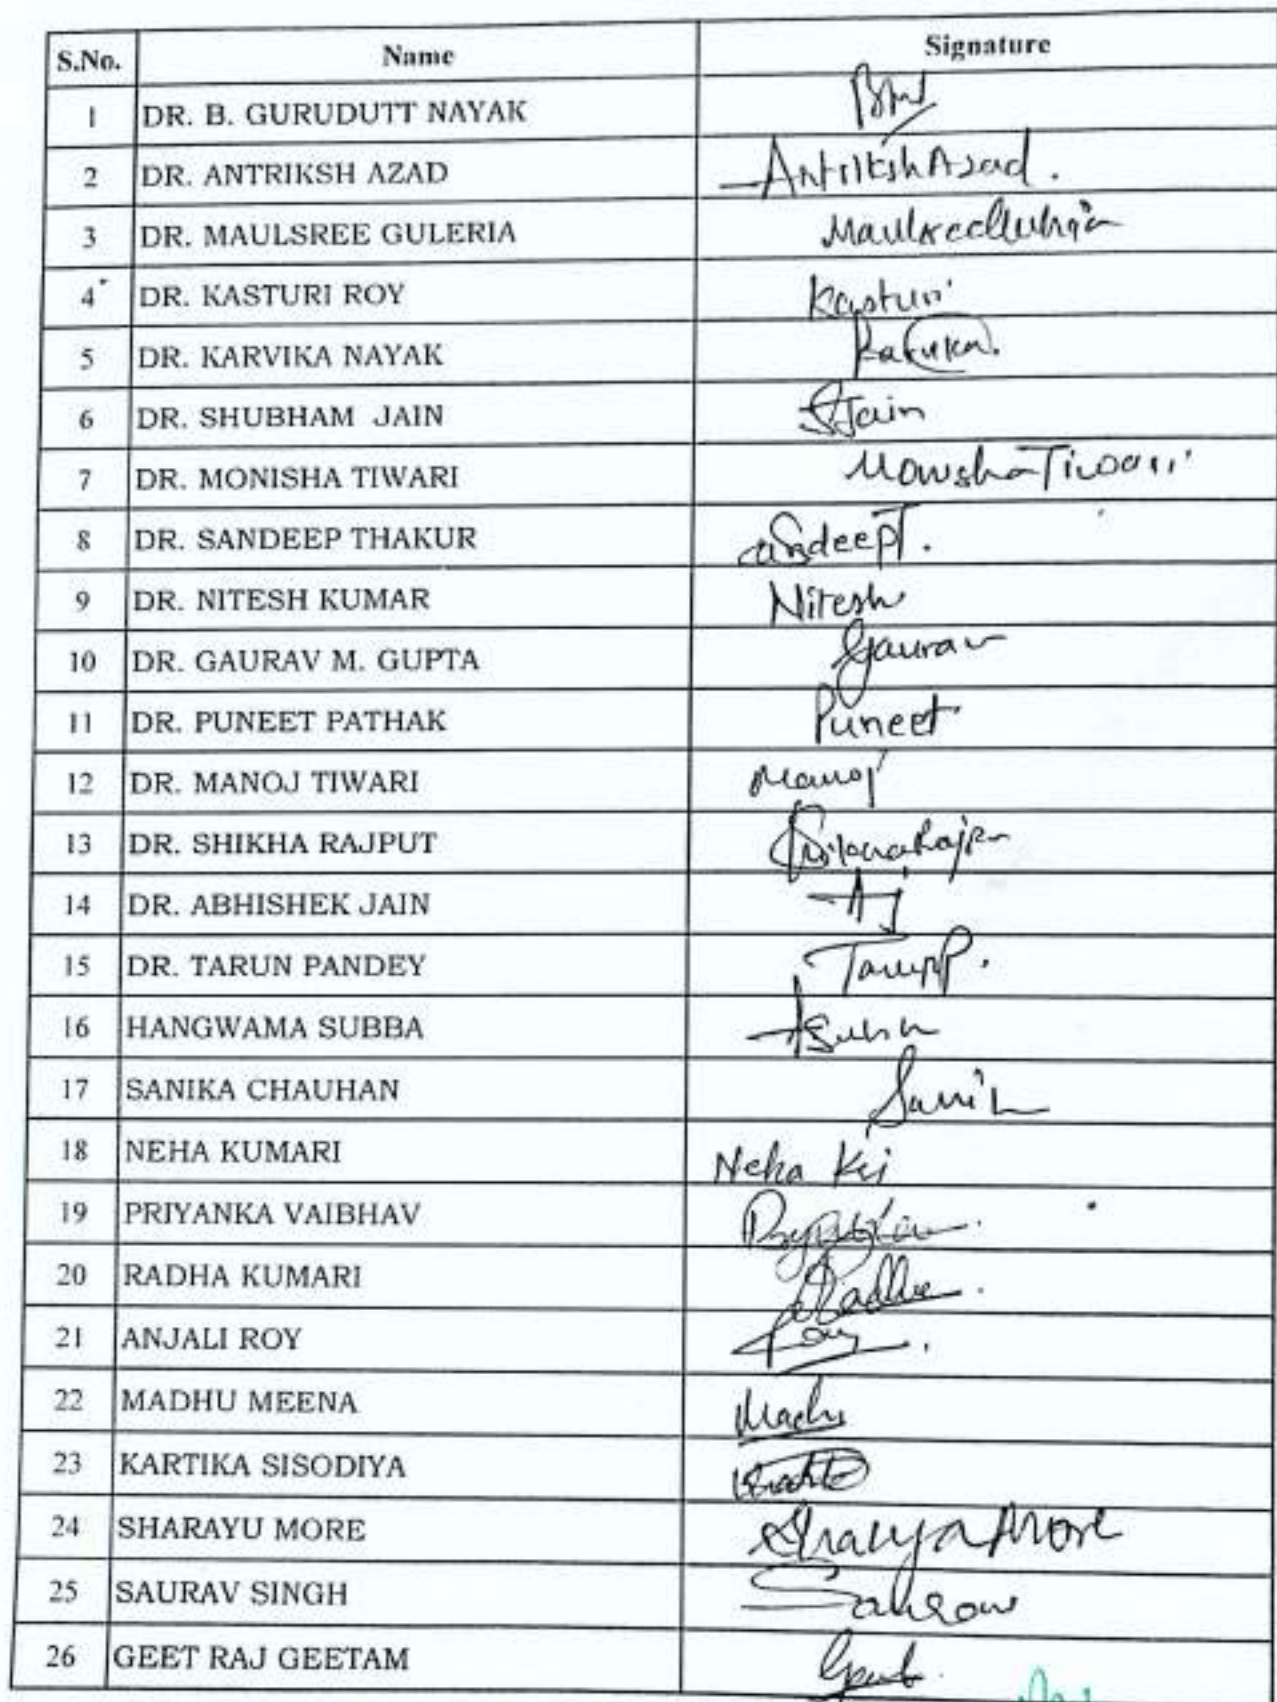 S.No. Name Signature
1 DR. B. GURUDUTT NAYAK
2 DR. ANTRIKSH AZAD Antriksh Azad.
3 DR. MAULSREE GULERIA
4 DR. KASTURI ROY Kasturi
5 DR. KARVIKA NAYAK
6 DR. SHUBHAM JAIN SJain
7 DR. MONISHA TIWARI Monisha Tiwari
8 DR. SANDEEP THAKUR SandeepT.
9 DR. NITESH KUMAR Nitesh
10 DR. GAURAV M. GUPTA Gaurav
11 DR. PUNEET PATHAK Puneet
12 DR. MANOJ TIWARI Manoj
13 DR. SHIKHA RAJPUT
14 DR. ABHISHEK JAIN AJ
15 DR. TARUN PANDEY
16 HANGWAMA SUBBA
17 SANIKA CHAUHAN
18 NEHA KUMARI Neha Kri
19 PRIYANKA VAIBHAV
20 RADHA KUMARI Radha.
21 ANJALI ROY
22 MADHU MEENA Madhu
23 KARTIKA SISODIYA
24 SHARAYU MORE
25 SAURAV SINGH
26 GEET RAJ GEETAM